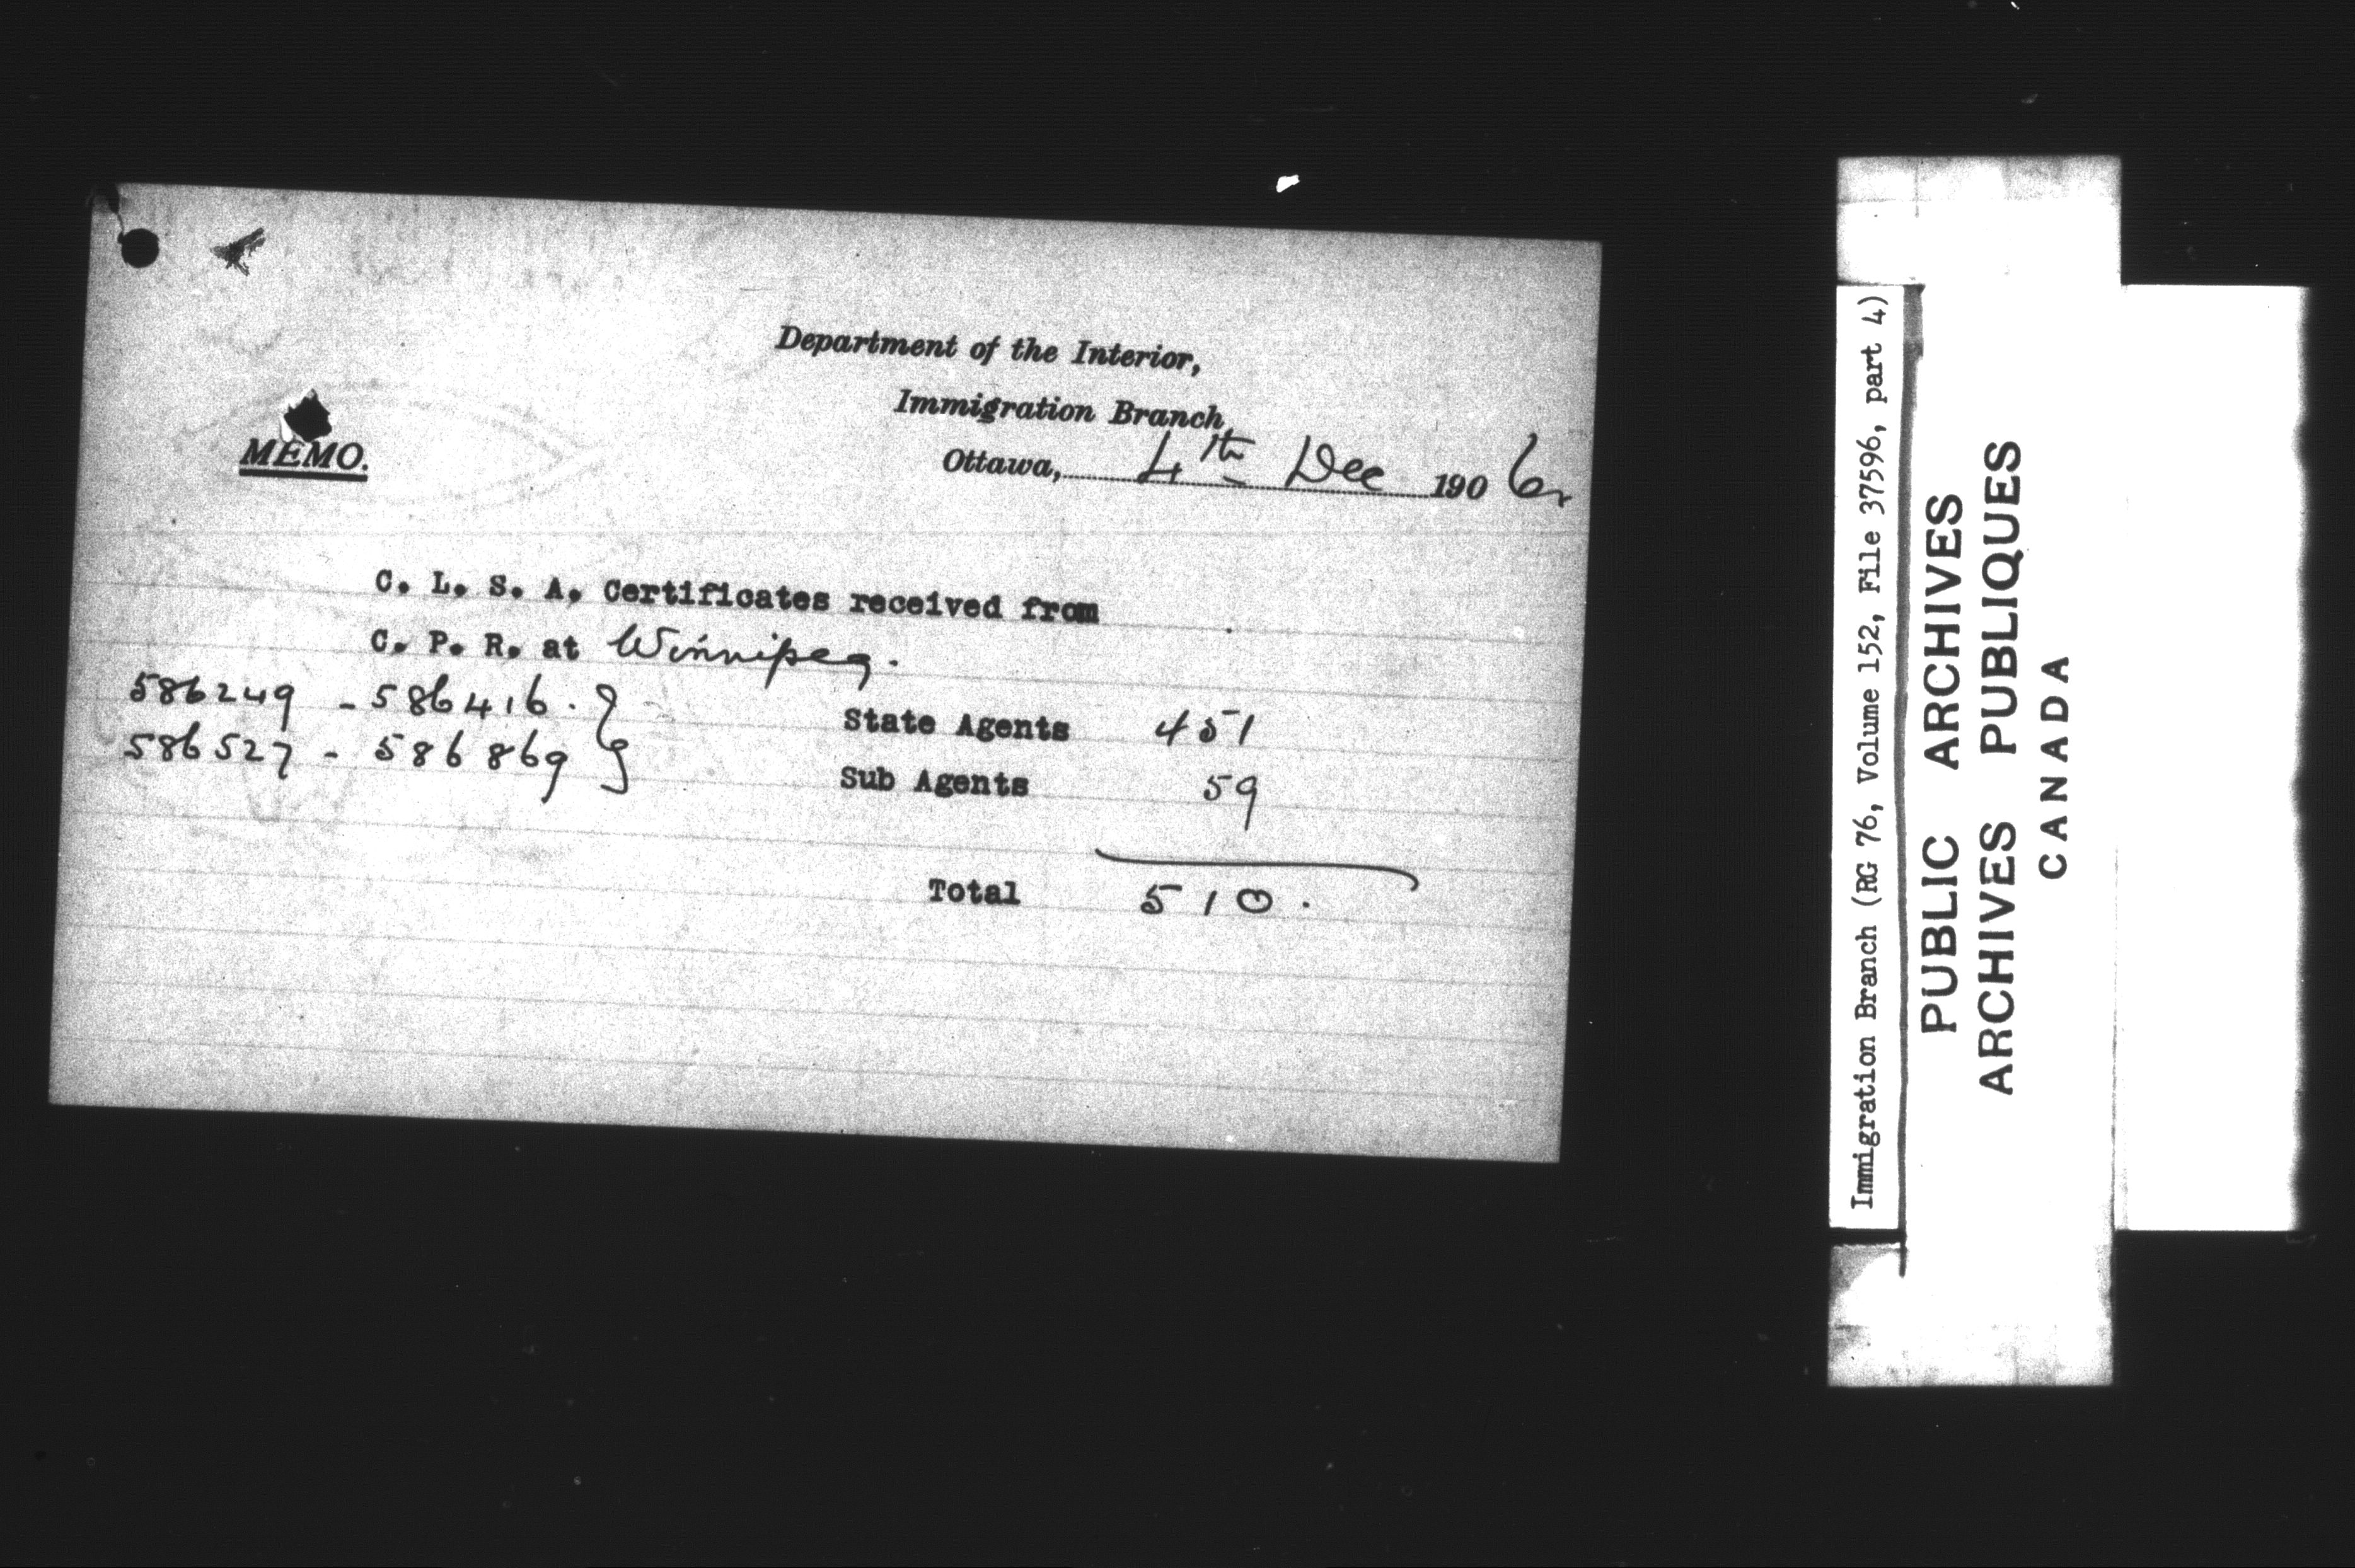 Department of the Interior,
Immigration Branch,
MEMO.
Ottawa, 4th Dec 1906
C. L. S. A. Certificates received from
C. P. R. at Winnipeg.
586249 - 586416.
586527 - 586869
State Agents 451
Sub Agents 59
Total 510.
Immigration Branch (RG 76, Volume 152, File 37596, part 4)
PUBLIC ARCHIVES
ARCHIVES PUBLIQUES
CANADA